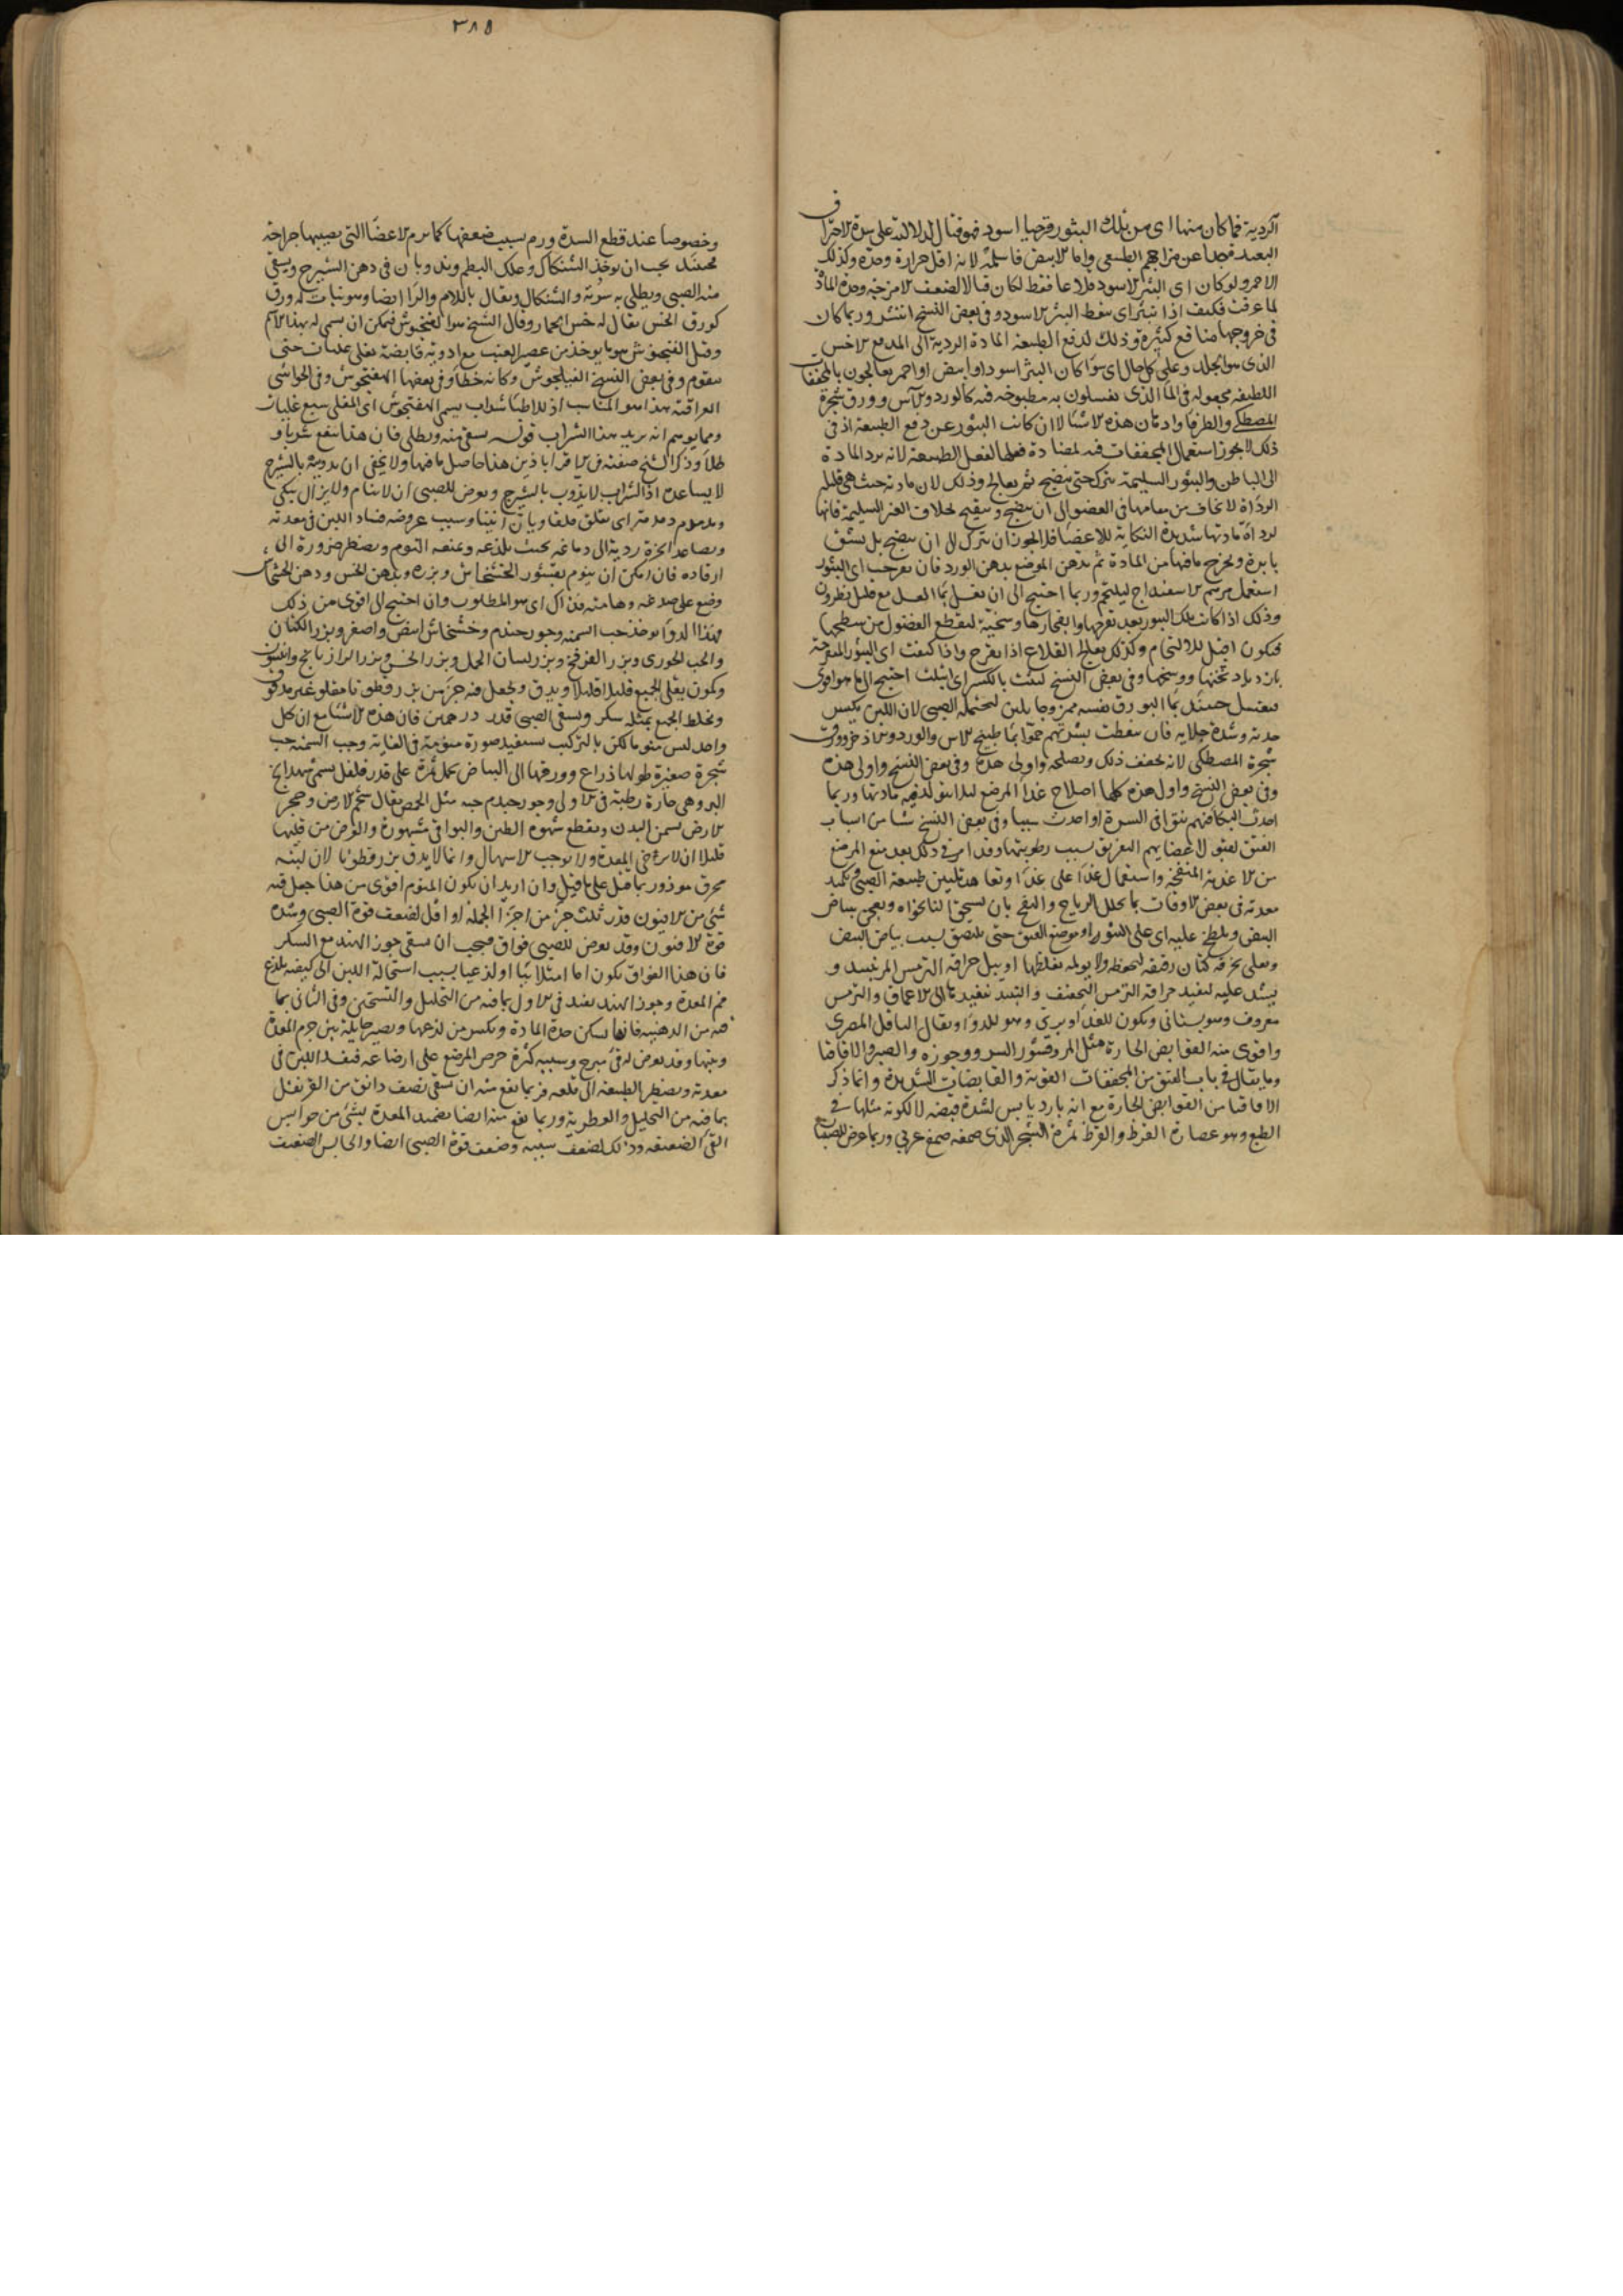 ٣٨٥
الردية فما كان منها اى من تلك البثور قرحيا اسود فهو قتال لدلالته على شدة الاحتراق
البعيد جدا عن مزاجهم الطبيعى واما الابيض فاسلم لانه اقل حرارة وحدة وكذلك
الاحمر ولو كان اى البثر الاسود قلاعا فقط لكان قتالا لضعف الامزجة وحدة المادة
لما عرفت فكيف اذا تبثر اى سقط البثر الاسود وفى بعض النسخ انتشر وربما كان
فى خروجها منافع كثيرة وذلك لدفع الطبيعة المادة الردية الى المدفع الاخس
الذى هو الجلد وعلى كل حال اى سوا كان البثر اسود او ابيض او احمر يعالجون بالمجففات
اللطيفة مجعولة فى الما الذى يغسلون به مطبوخة فيه كالورد والآس وورق شجرة
المصطكى والطرفا وادهان هذه الاشيا الا ان كانت البثور عن دفع الطبيعة اذ فى
ذلك لا يجوز استعمال المجففات فيه لمضادة فعلها لفعل الطبيعة لانه يرد المادة
الى الباطن والبثور السليمة تترك حتى تنضج ثم يعالج وذلك لان مادته حيث هى قليلة
الرداة لا يخاف من مقامها فى العضو الى ان ينضج ويتقيح بخلاف الغير السليمة فانها
لرداة مادتها شديدة النكاية للاعضا فلا يجوز ان يترك الى ان ينضج بل يشق
بابرة ويخرج ما فيها من المادة ثم يدهن الموضع بدهن الورد فان تقرحت اى البثور
استعمل مرهم الاسفيداج ليلتحم وربما احتيج الى ان تغسل بما العسل مع قليل نطرون
وذلك اذا كانت تلك البثور بعد تقرحها وانفجارها وسخة ليقطع الفضول من سطحها
فيكون اقبل للالتحام وكذلك يعالج القلاع اذا تقرح واذا كثفت اى البثور المتقرحة
فيغسل حينئذ بما البورق نفسه ممزوجا بلبن ليحتمله الصبى لان اللبن يكسر
حدته وشدة جلايه فان تنفطت بشرتهم حموا بما طبيخ الاس والورد والاذخر وورق
شجرة المصطكى لانه يجفف ذلك ويصلحه واولى هذه وفى بعض النسخ واولى هذه
وفى بعض النسخ واول هذه كلها اصلاح غذا المرضع وربما
احدث البكا فيهم نتوا فى السرة او احدث سببا وفى بعض النسخ شيا من اسباب
الفتق لقبول اعضايهم التفريق بسبب رطوبتها وقد امر فى ذلك بعد منع المرضع
من الاغذية المنفخة واستعمال غذا على غذا وتعاهد تليين طبيعة الصبى وتكميد
معدته فى بعض الاوقات بما يحلل الرياح والنفخ بان يسحق النانخواه ويعجن ببياض
البيض ويلطخ عليه اى على النتو او موضع الفتق حتى يلتصق بسبب بياض البيض
ويعلى بخرقة كتان رقيقة ليحفظه ولا يولمه بغلظها او يبل حراقة الترمس المر بنبيذ و
يشد عليه ليفيد حراقة الترمس التجفيف والنبيذ تنفيذها الى الاعماق والترمس
معروف وهو بستانى ويكون للغذا وبرى وهو للدوا ويقال الباقلى المصرى
واقوى منه القوابض الحارة مثل المر وقشور السرو وجوزه والصبر والاقاقيا
وما يقال فى باب الفتق من المجففات القوية والقابضات الشديدة وانما ذكر
الاقاقيا من القوابض الحارة مع انه بارد يابس لشدة قبضه لا لكونه مثلها فى
الطبع وهو عصارة القرظ والقرظ ثمرة الشجر الذى صمغه صمغ عربى وربما عرض للصبيان
وخصوصا عند قطع السرة ورم بسبب ضعفها كما يرم الاعضا التى يصيبها جراحة
فحينئذ يجب ان يوخذ الشنكال وعلك البطم ويذوبان فى دهن الشيرج ويسقى
منه الصبى ويطلى به سرته والشنكال ويقال باللام والرا ايضا وهو نبات له ورق
كورق الخس يقال له خس الحمار وقال الشيخ هو الفنجيوش فيمكن ان يسمى له بهذا الاسم
وقيل الفنجيوش هو ما يوخذ من عصير العنب مع ادوية قابضة يغلى غليات حتى
يتقوم وفى بعض النسخ وكانه خطا وفى بعضها وفى الحواشى
العراقية هذا هو المناسب اذ للاطبا شراب يسمى اى المغلى سبع غليات
ومما يوهم انه يريد هذا الشراب قوله يسقى منه ويطلى فان هذا ينفع شربا و
طلا وذكر الشيخ صفته فى الاقراباذين هذا حاصل ما فيها ولا يخفى ان تذويبه بالشيرج
لا يساعده اذ الشراب لا يذوب بالشيرج ويعرض للصبى ان لا ينام ولا يزال يبكى
ويدمدم دمدمة اى يقلق قلقا وسبب عروضه فساد اللبن فى معدته
وتصاعد ابخرة ردية الى دماغه بحيث يلذعه ويمنعه النوم ويضطر ضرورة الى
ارقاده فان امكن ان ينوم بقشور الخشخاش وبزره وبدهن الخس ودهن الخشخاش
وضع على صدغه وهامته فذاك اى هو المطلوب وان احتيج الى اقوى من ذلك
فهذا الدوا يوخذ حب السمنة وجوز جندم وخشخاش ابيض واصفر وبزر الكتان
والحب الخوزى وبزر الفرفخ وبزر لسان الحمل وبزر الخس وبزر الرازيانج وانيسون
وكمون يقلى الجميع قليلا قليلا ويدق ويجعل فيه جز من بزر قطونا مقلو غير مدقوق
ويخلط الجميع بمثله سكر ويسقى الصبى قدر درهمين فان هذه الاشيا مع ان كل
واحد ليس منوما لكن بالتركيب يستفيد صورة منومة فى الغاية وحب السمنة حب
شجرة صغيرة طولها ذراع وورقها الى البياض يحمل ثمرة على قدر فلفل يسمى شهدانج
البر وهى حارة رطبة فى الاولى وجوز جندم حبه مثل الحمص يقال شحم الارض وحجر
الارض يسمن البدن ويقطع شهوة الطين والبواقى مشهورة والغرض من قليها
قليلا ان لا يرخى المعدة ولا يوجب الاسهال وانما لا يدق بزر قطونا لان لبنه
محرق موذ وربما قتل على ما قيل وان اريد ان يكون المنوم اقوى من هذا جعل فيه
شى من الافيون قدر ثلث جز من اجزا الجملة او اقل لضعف قوة الصبى وشدة
قوة الافيون وقد يعرض للصبى فواق فيجب ان يسقى جوز الهند مع السكر
فان هذا الفواق يكون اما امتلائيا او لذعيا بسبب استحالة اللبن الى كيفية يلذع
فم المعدة وجوز الهند يفيد فى الاول بما فيه من التحليل والتسخين وفى الثانى بما
فيه من الدهنية فانها يسكن حدة المادة ويكسر من لذعها ويصير حايلة بين جرم المعدة
وبينها وقد يعرض له قى مبرح وسببه كثرة حرص المرضع على ارضاعه فيفسد اللبن فى
معدته ويضطر الطبيعة الى قلعه فربما نفع منه ان يسقى نصف دانق من القرنفل
بما فيه من التحليل والعطرية وربما نفع منه ايضا تضميد المعدة بشى من حوابس
القى الضعيفة وذلك لضعف سببه وضعف قوة الصبى ايضا والحابس الضعيف